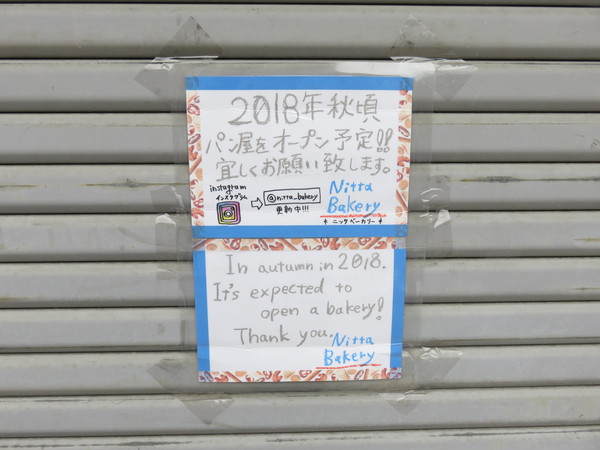 2018年秋頃
パン屋をオープン予定!!
宜しくお願い致します。
instagram
インスタグラム
@nitta_bakery
更新中!!!
Nitta
Bakery
ニッタベーカリー
In autumn in 2018.
It's expected to
open a bakery!
Thank you.
Nitta
Bakery